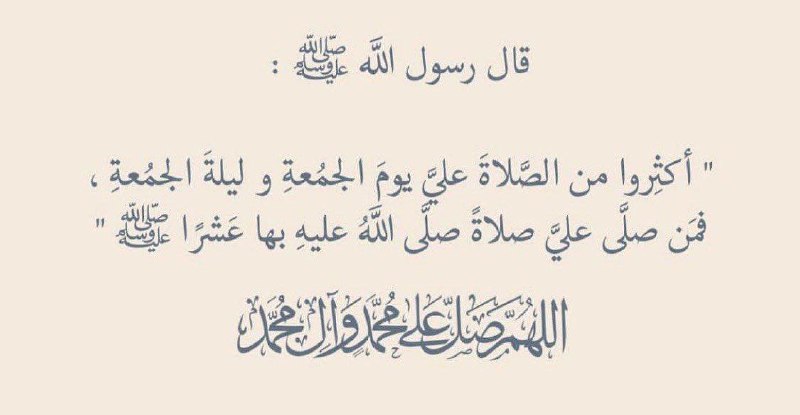 قال رسول اللَّه ﷺ :
" أكثِروا من الصَّلاةَ عليَّ يومَ الجمُعةِ و ليلةَ الجمُعةِ ،
فمَن صلَّى عليَّ صلاةً صلَّى اللَّهُ عليهِ بها عَشرًا ﷺ "
اللهُمَّ صَلِّ عَلى مُحمَّد وَآلِ مُحمَّد